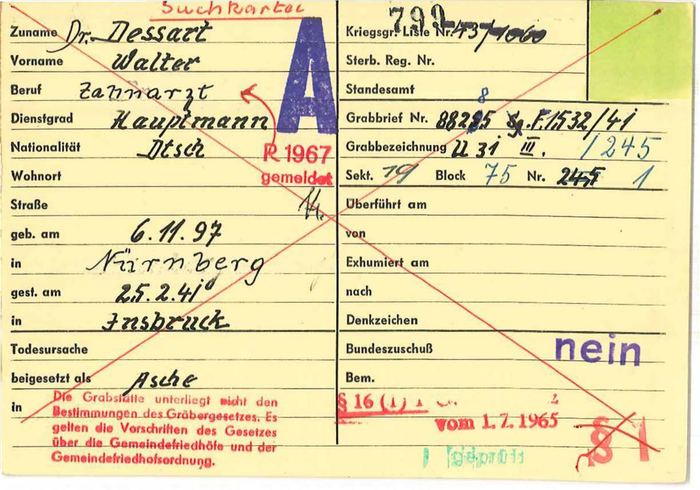 Suchkartei
Zuname Dr. Dessart
Vorname Walter
Beruf Zahnarzt
Dienstgrad Hauptmann
Nationalität Dtsch
Wohnort
Straße
geb. am 6.11.97
in Nürnberg
gest. am 25.2.41
in Insbruck
Todesursache
beigesetzt als Asche
in
Die Grabstätte unterliegt nicht den
Bestimmungen des Gräbergesetzes. Es
gelten die Vorschriften des Gesetzes
über die Gemeindefriedhöfe und der
Gemeindefriedhofsordnung.
A
R 1967
gemeldet
799
Kriegsgr. Liste Nr.
Sterb. Reg. Nr.
Standesamt
8
Grabbrief Nr. 88285 F.1532/41
Grabbezeichnung U 31 III. /245
Sekt. 19 Block 75 Nr. 245 1
Überführt am
von
Exhumiert am
nach
Denkzeichen
Bundeszuschuß nein
Bem.
§ 16 (1) 1
vom 1.7.1965
§ 1
geprüft